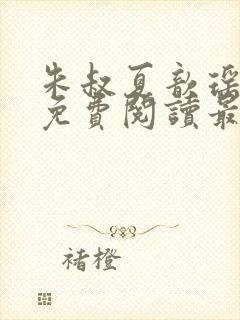 朱叔夏歆瑶
免費閱讀最
褚橙